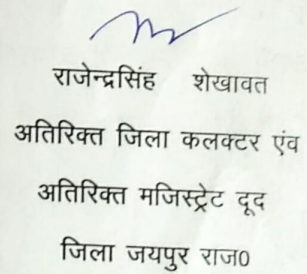 राजेन्द्रसिंह शेखावत
अतिरिक्त जिला कलक्टर एंव
अतिरिक्त मजिस्ट्रेट दूद
जिला जयपुर राज0